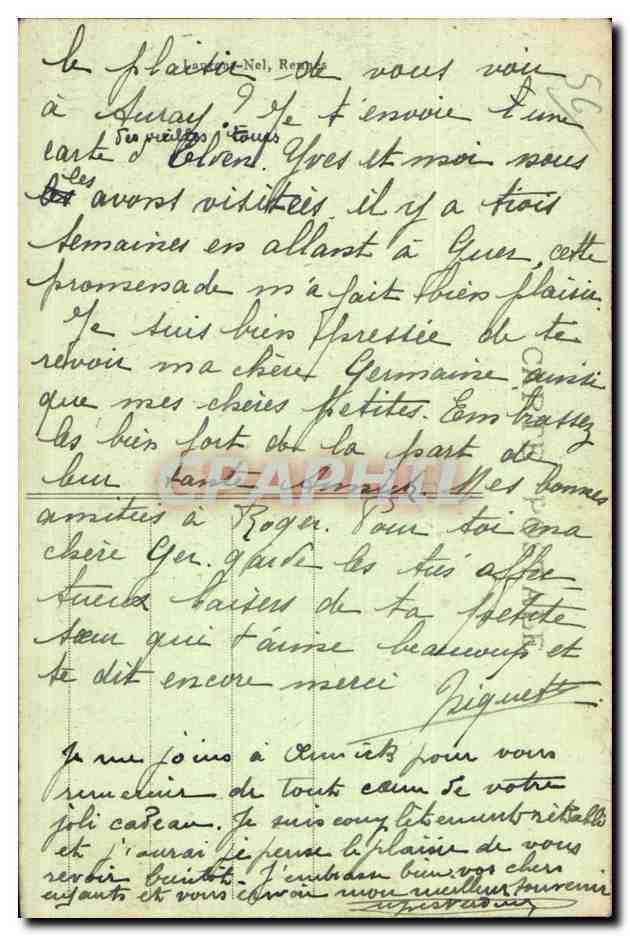 Laurent-Nel, Rennes
le plaisir de vous voir
à Auray ? Je t'envoie 1 une
carte d'Elven. Yves et moi nous
des vieilles tours
les avons visitées il y a trois
semaines en allant à Guer, cette
promenade m'a fait bien plaisir.
Je suis bien pressée de te
revoir ma chère Germaine ainsi
que mes chères petites. Embrassez
les bien fort de la part de
leur tante Annick. Mes bonnes
amitiés à Roger. Pour toi ma
chère Ger. garde les très affec
tueux baisers de ta petite
sœur qui t'aime beaucoup et
te dit encore merci
Je me joins à Annick pour vous
remercier de tout cœur de votre
joli cadeau. Je suis complètement rétabli
et j'aurai je pense le plaisir de vous
revoir bientôt. J'embrasse bien vos chers
enfants et vous envoie mon meilleur souvenir
CARTE POSTALE
CPAPHIL